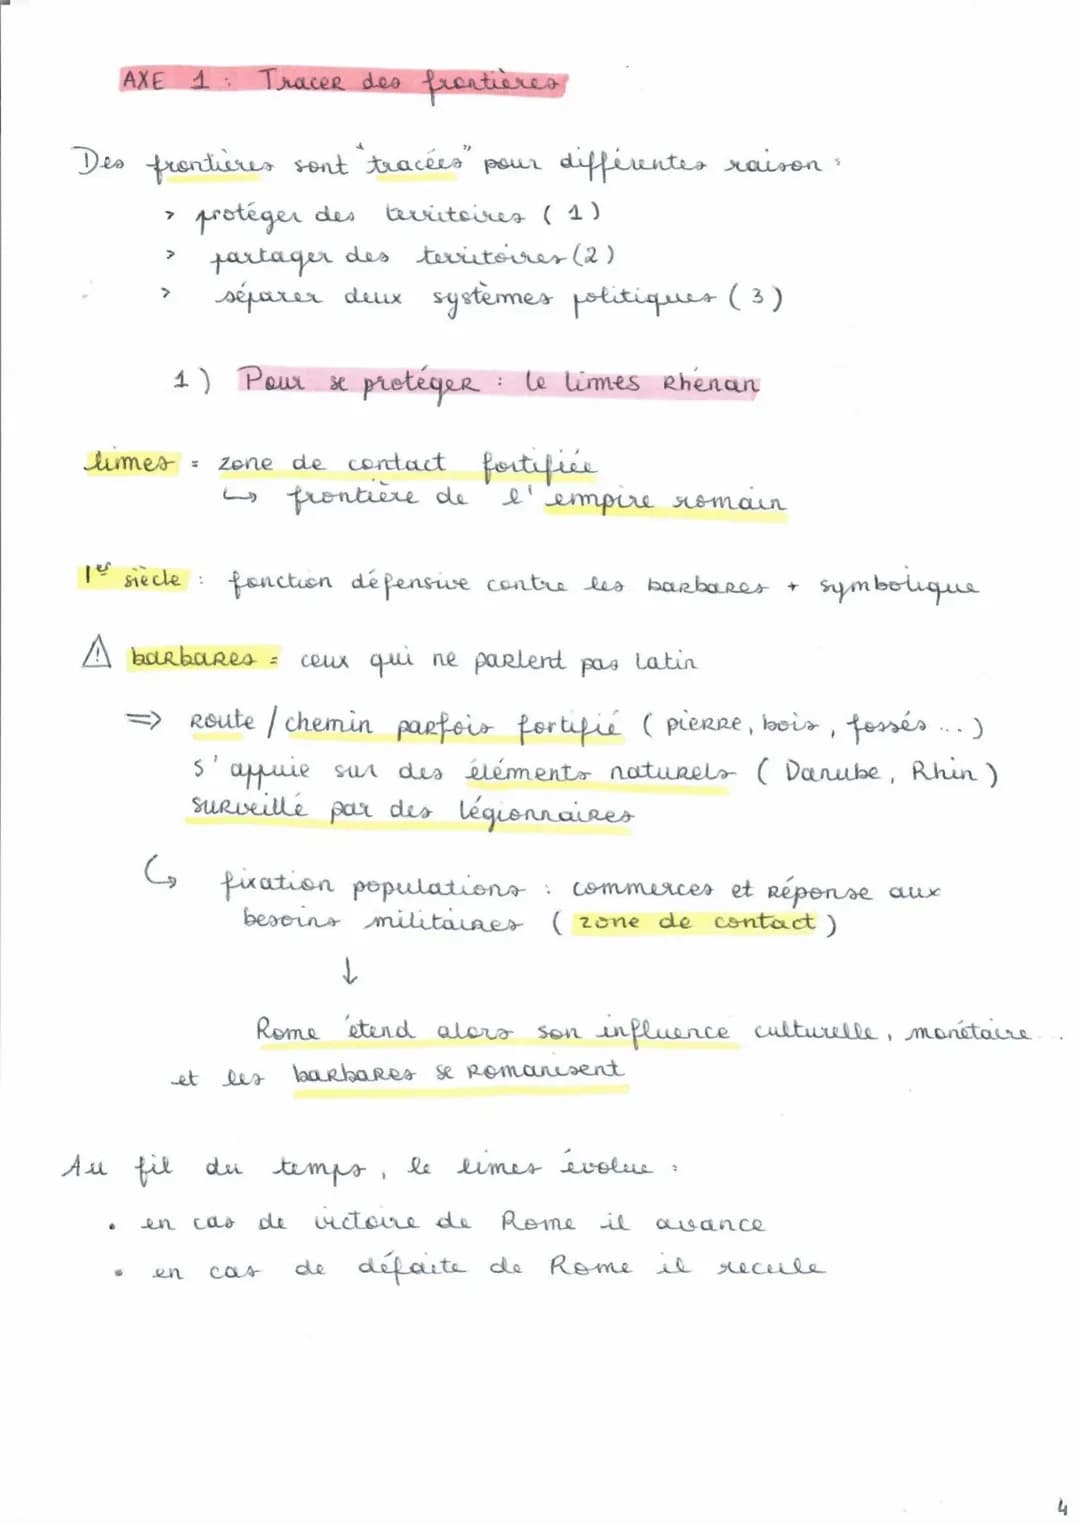 AXE 1 : Tracer des frontières
Des frontières sont "tracées" pour différentes raison :
> protéger des territoires (1)
> partager des territoires (2)
> séparer deux systèmes politiques (3)
1) Pour se protéger : le limes Rhénan
limes = zone de contact fortifiée
↳ frontière de l'empire romain
1er siècle : fonction défensive contre les barbares + symbolique
⚠ barbares = ceux qui ne parlent pas latin
=> Route / chemin parfois fortifié (pierre, bois, fossés ...)
s'appuie sur des éléments naturels (Danube, Rhin)
surveillé par des légionnaires
↳ fixation populations : commerces et réponse aux
besoins militaires (zone de contact)
↓
Rome étend alors son influence culturelle, monétaire ...
et les barbares se romanisent
Au fil du temps, le limes évolue :
• en cas de victoire de Rome il avance
• en cas de défaite de Rome il recule
4